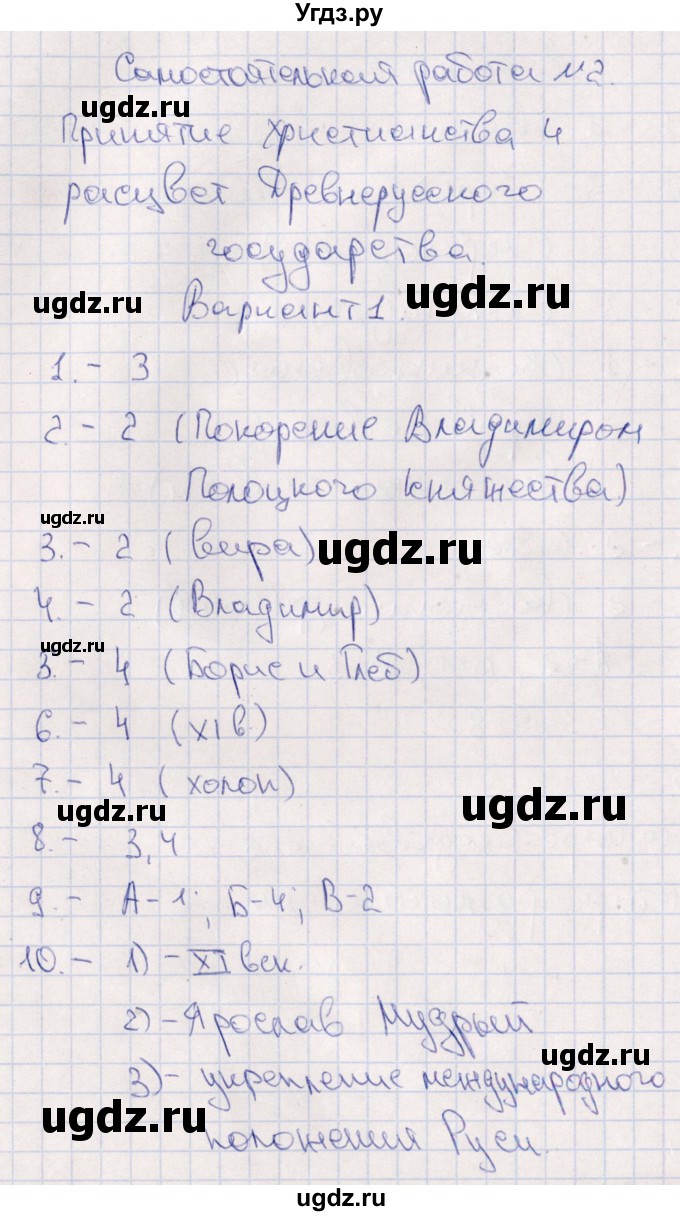 Угдз.ру
Самостоятельная работа №2.
ugdz.ru
Принятие христианства и
расцвет Древнерусского
государства.
ugdz.ru
ugdz.ru
Вариант 1.
1.- 3
2.- 2 (Покорение Владимиром
Полоцкого княжества)
ugdz.ru
3.- 2 (вира)
ugdz.ru
4.- 2 (Владимир)
ugdz.ru
3.- 4 (Борис и Глеб)
6.- 4 (XI в.)
7.- 4 (холоп)
ugdz.ru
ugdz.ru
8.- 3,4
9.- А-1; Б-4; В-2
10.- 1) - XI век.
2) - Ярослав Мудрый
ugdz.ru
3) - укрепление международного
ugdz.ru
положения Руси.
ugdz.ru